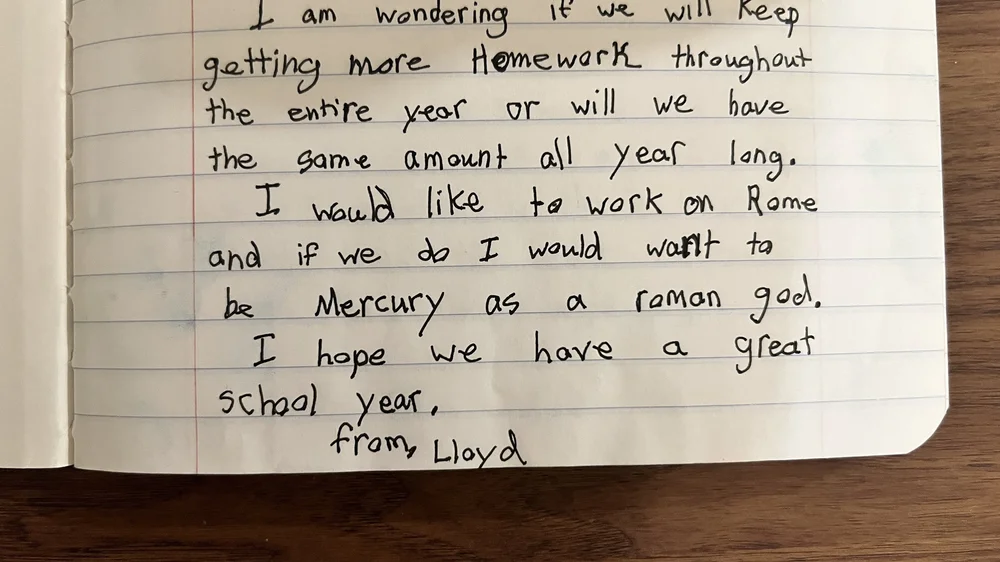 I am wondering if we will keep
getting more Homework throughout
the entire year or will we have
the same amount all year long.
I would like to work on Rome
and if we do I would want to
be Mercury as a roman god.
I hope we have a great
school year.
from, Lloyd